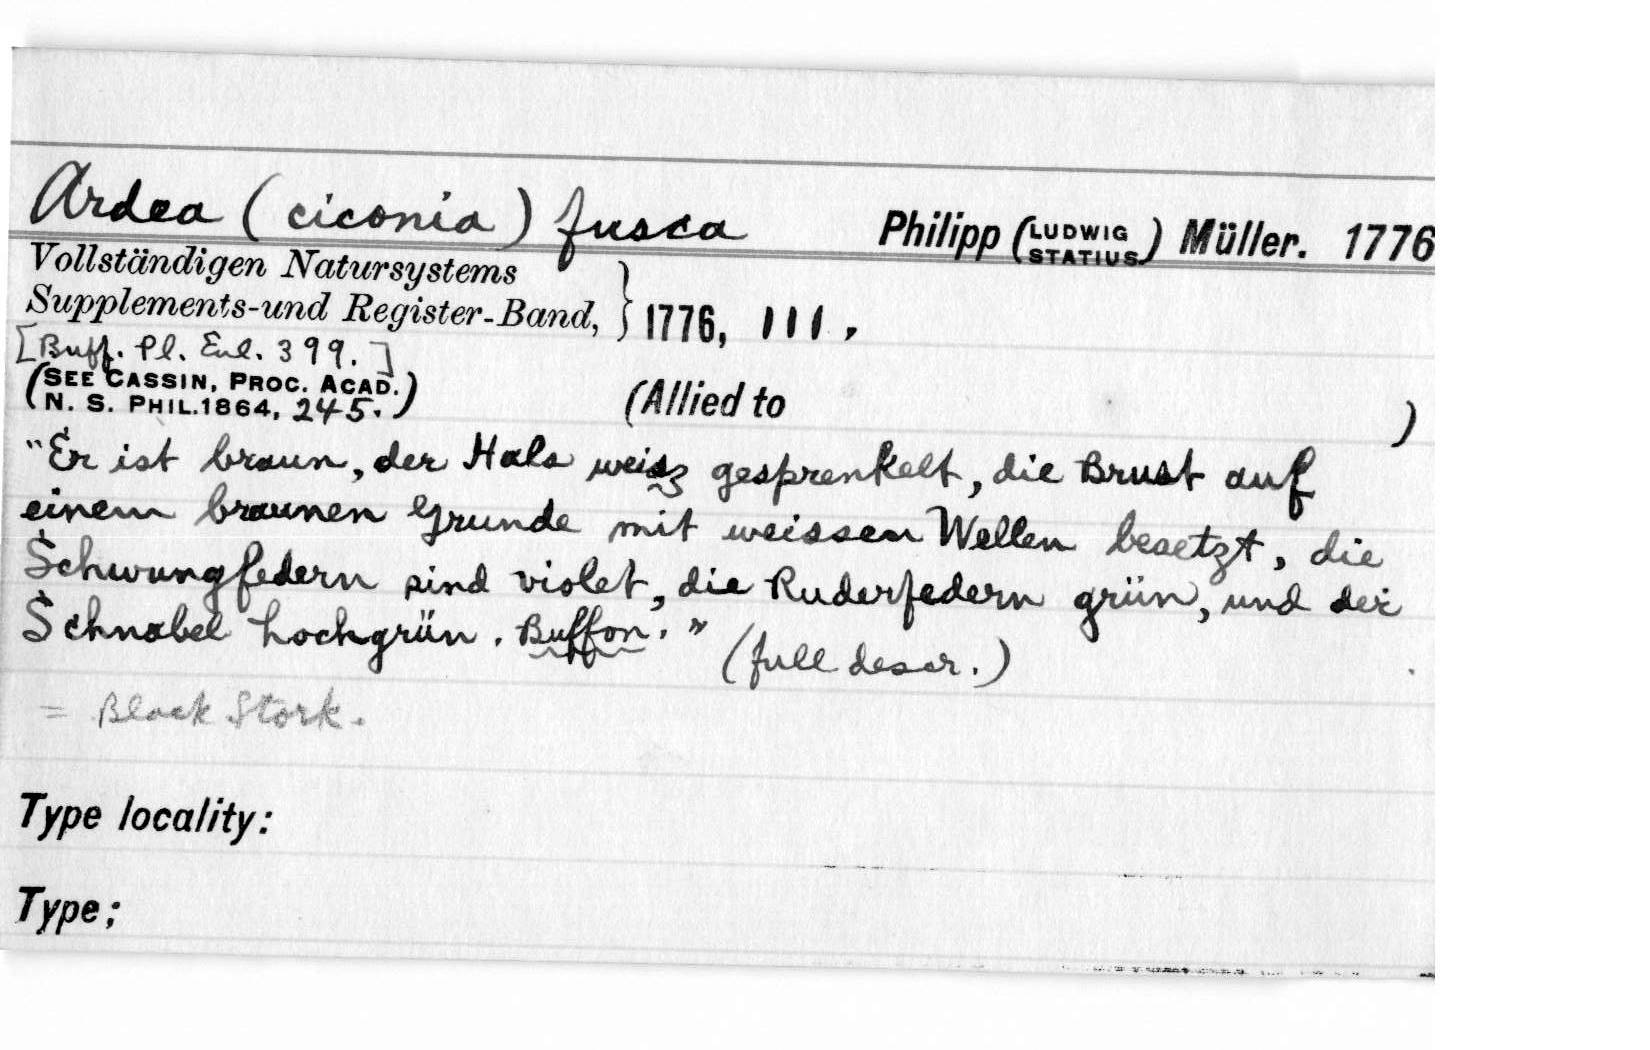 Ardea (ciconia) fusca Philipp (LUDWIG STATIUS) Müller. 1776
Vollständigen Natursystems
Supplements-und Register-Band, } 1776, 111.
[Buff. Pl. Enl. 399.]
(SEE CASSIN, PROC. ACAD.
N. S. PHIL. 1864, 245.) (Allied to )
"Er ist braun, der Hals weisz gesprenkelt, die Brust auf
einem braunen Grunde mit weissen Wellen besetzt, die
Schwungfedern sind violet, die Ruderfedern grün, und der
Schnabel hochgrün. Buffon." (full descr.)
= Black Stork.
Type locality:
Type;